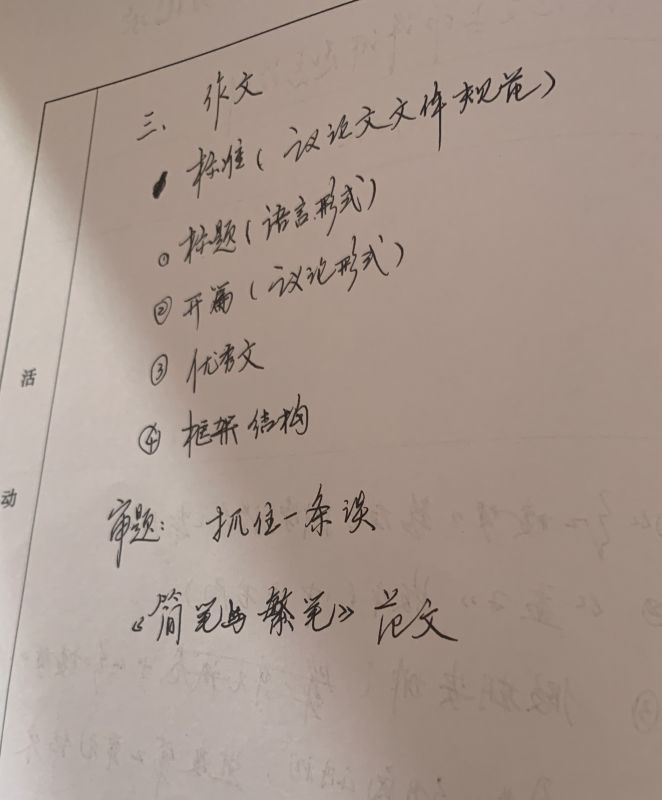 三、作文
标准(议论文文体规范)
标题(语言形式)
② 开篇(议论形式)
③ 优秀文
④ 框架结构
审题: 抓住一条误
《简笔与繁笔》范文
活
动